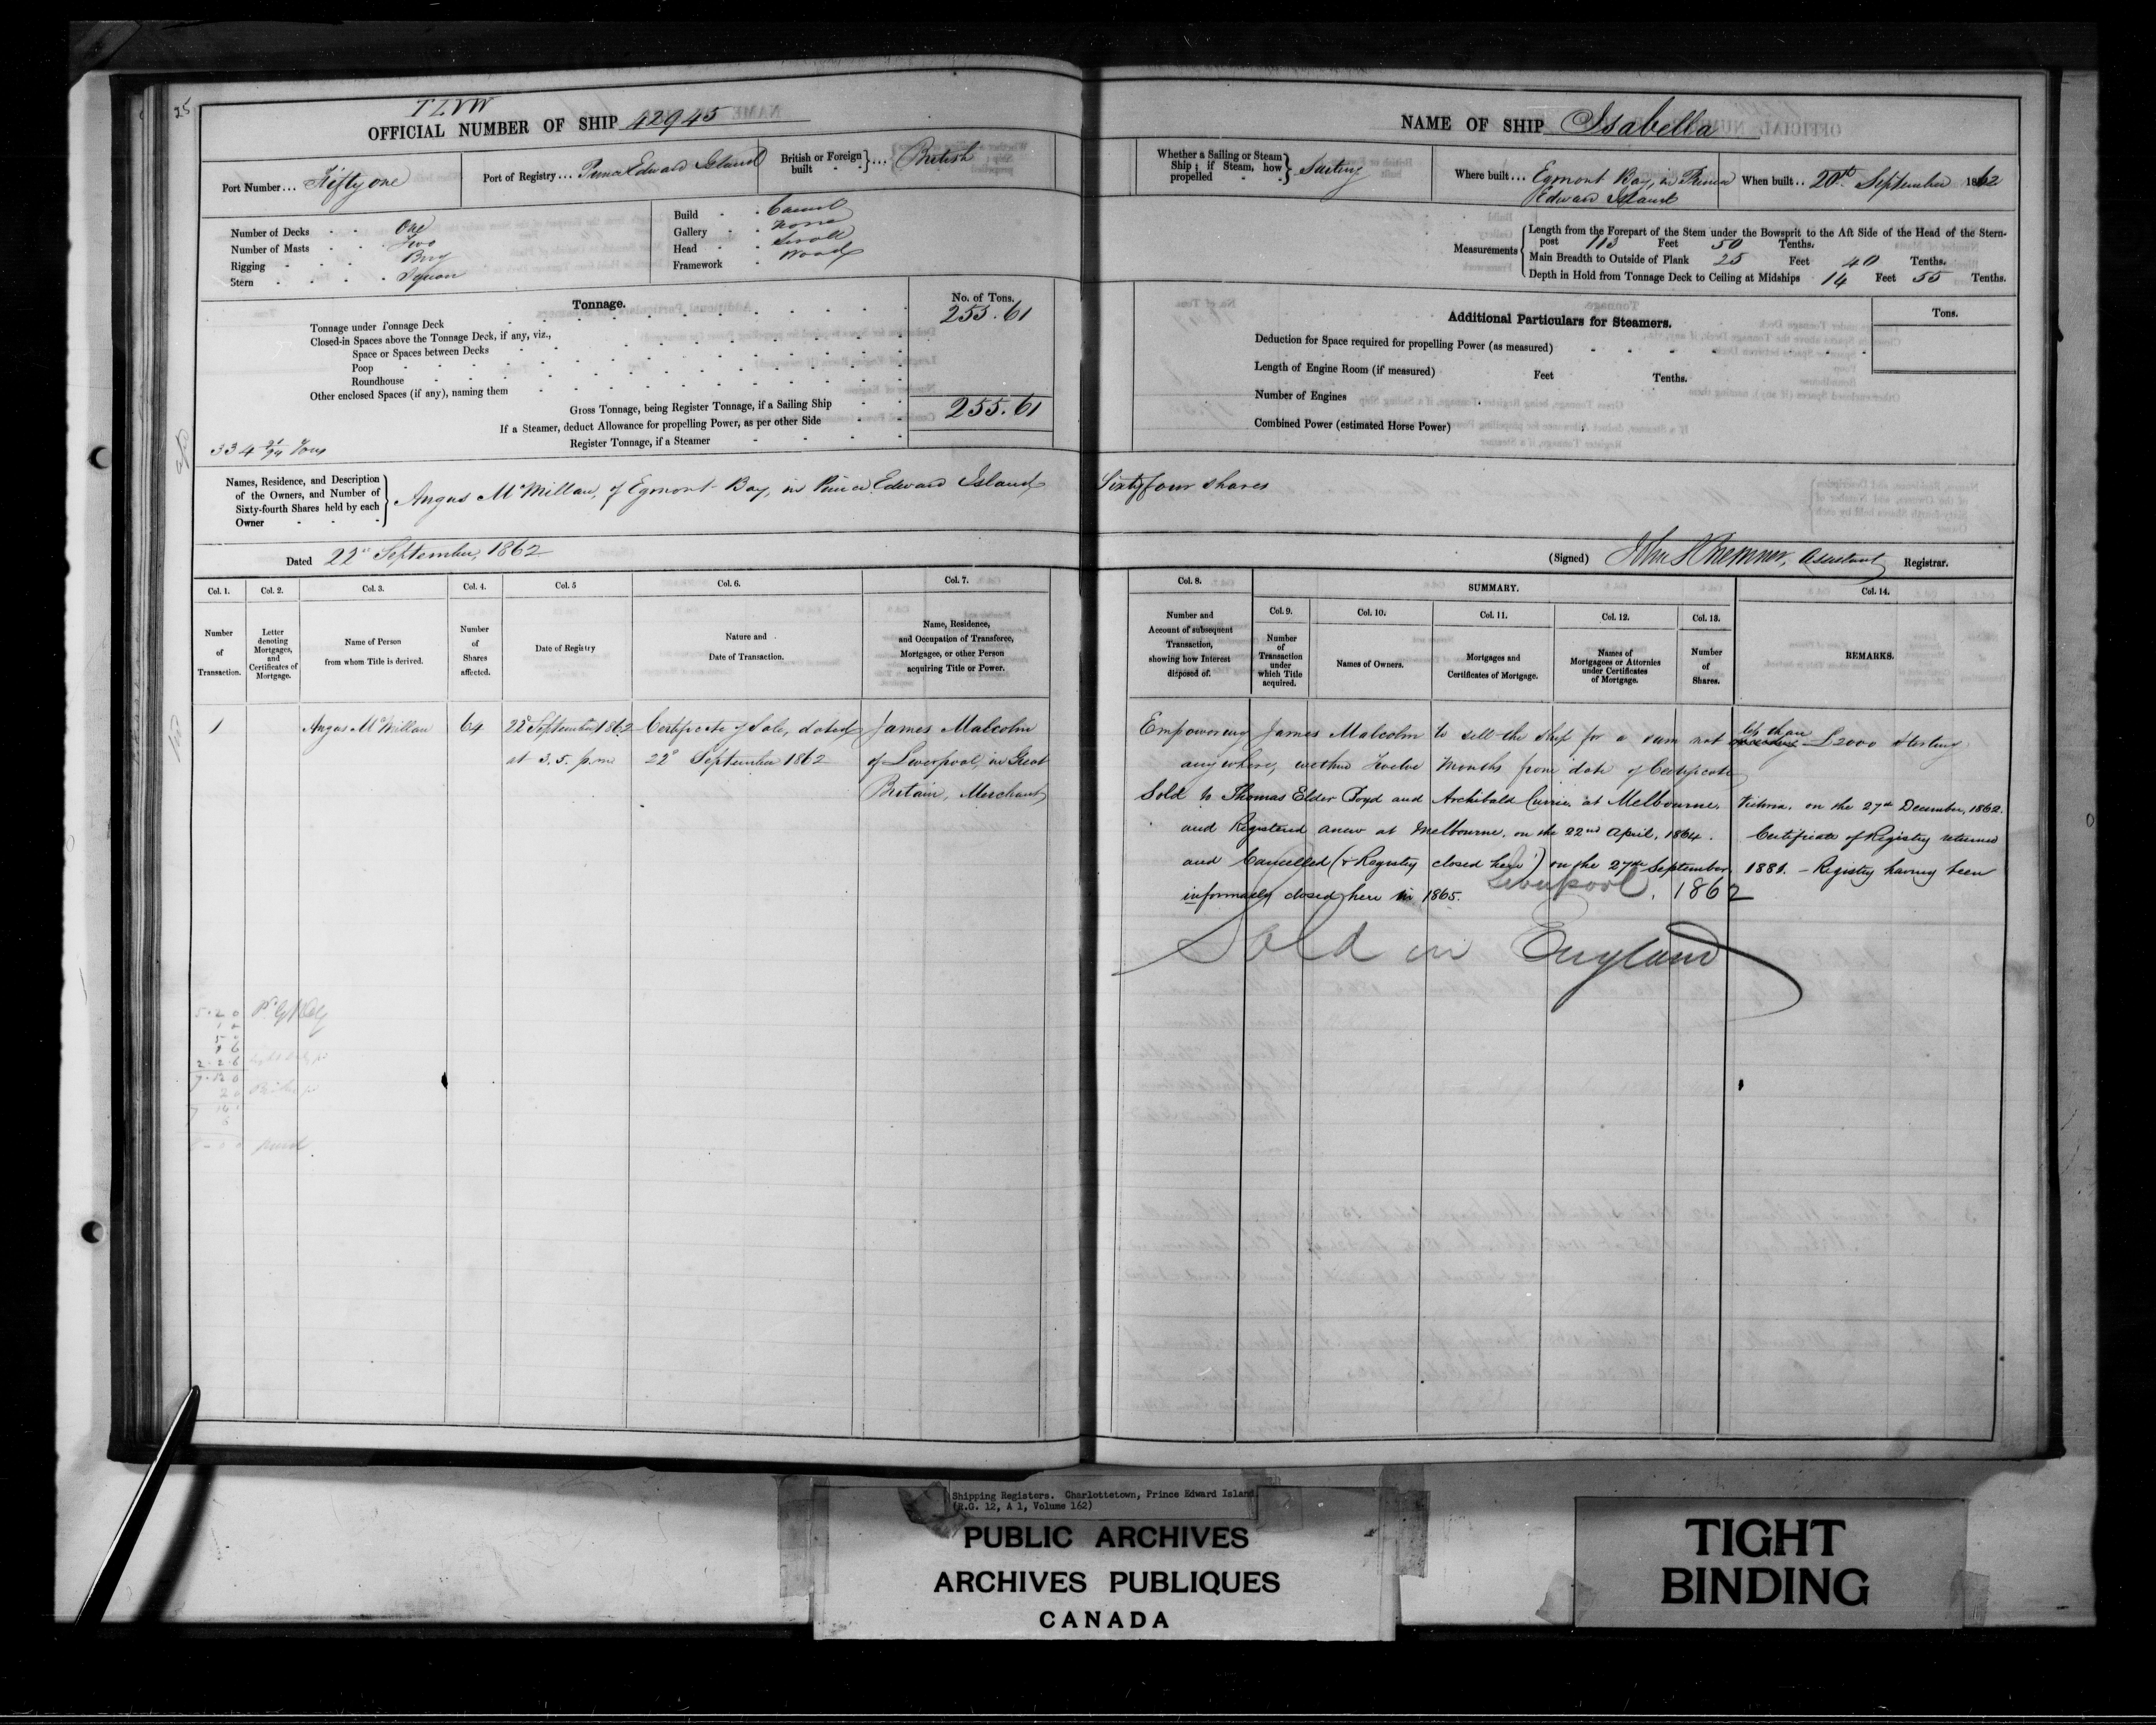 25
TLVW
OFFICIAL NUMBER OF SHIP 42945
Port Number... Fifty one
Port of Registry... Prince Edward Island
British or Foreign built ... British
Number of Decks One
Number of Masts Two
Rigging Brig
Stern Square
Build Carvel
Gallery None
Head Scroll
Framework Wood
Tonnage.
No. of Tons.
Tonnage under Tonnage Deck 255.61
Closed-in Spaces above the Tonnage Deck, if any, viz.,
Space or Spaces between Decks
Poop
Roundhouse
Other enclosed Spaces (if any), naming them
Gross Tonnage, being Register Tonnage, if a Sailing Ship 255.61
If a Steamer, deduct Allowance for propelling Power, as per other Side
Register Tonnage, if a Steamer
334 Tons
NAME OF SHIP Isabella
Whether a Sailing or Steam Ship; if Steam, how propelled Sailing
Where built... Egmont Bay, in Prince
Edward Island
When built.. 20th September 1862
Measurements
Length from the Forepart of the Stem under the Bowsprit to the Aft Side of the Head of the Stern-
post 113 Feet 50 Tenths.
Main Breadth to Outside of Plank 25 Feet 40 Tenths.
Depth in Hold from Tonnage Deck to Ceiling at Midships 14 Feet 55 Tenths.
Additional Particulars for Steamers.
Tons.
Deduction for Space required for propelling Power (as measured)
Length of Engine Room (if measured) Feet Tenths.
Number of Engines
Combined Power (estimated Horse Power)
Names, Residence, and Description
of the Owners, and Number of
Sixty-fourth Shares held by each
Owner
Angus McMillan, of Egmont Bay, in Prince Edward Island Sixty four shares
Dated 22d September, 1862
(Signed) John Assistant Registrar.
Col. 1. Col. 2. Col. 3. Col. 4. Col. 5 Col. 6. Col. 7.
Number of Transaction.
Letter denoting Mortgages, and Certificates of Mortgage.
Name of Person from whom Title is derived.
Number of Shares affected.
Date of Registry
Nature and Date of Transaction.
Name, Residence, and Occupation of Transferee, Mortgagee, or other Person acquiring Title or Power.
Col. 8.
Number and Account of subsequent Transaction, showing how Interest disposed of.
SUMMARY.
Col. 9. Col. 10. Col. 11. Col. 12. Col. 13.
Number of Transaction under which Title acquired.
Names of Owners.
Mortgages and Certificates of Mortgage.
Names of Mortgagees or Attornies under Certificates of Mortgage.
Number of Shares.
Col. 14.
REMARKS.
1 Angus McMillan 64 22d September 1862 Certificate of Sale, dated James Malcolm
at 3.5. p.m. 22d September 1862 of Liverpool, in Great
Britain, Merchant
Empowering James Malcolm to sell the Ship for a sum not less than £2000 Sterling
anywhere, within Twelve Months from date of Certificate
Sold to Thomas Elder Boyd and Archibald Currie, at Melbourne, Victoria, on the 27th December, 1862.
and Registered anew at Melbourne, on the 22nd April, 1864. Certificate of Registry returned
and Cancelled (& Registry closed here) on the 27th September 1881. - Registry having been
informally closed here in 1865.
Liverpool, 1862
Sold in England
paid
Shipping Registers. Charlottetown, Prince Edward Island
(R.G. 12, A 1, Volume 162)
PUBLIC ARCHIVES
ARCHIVES PUBLIQUES
CANADA
TIGHT
BINDING